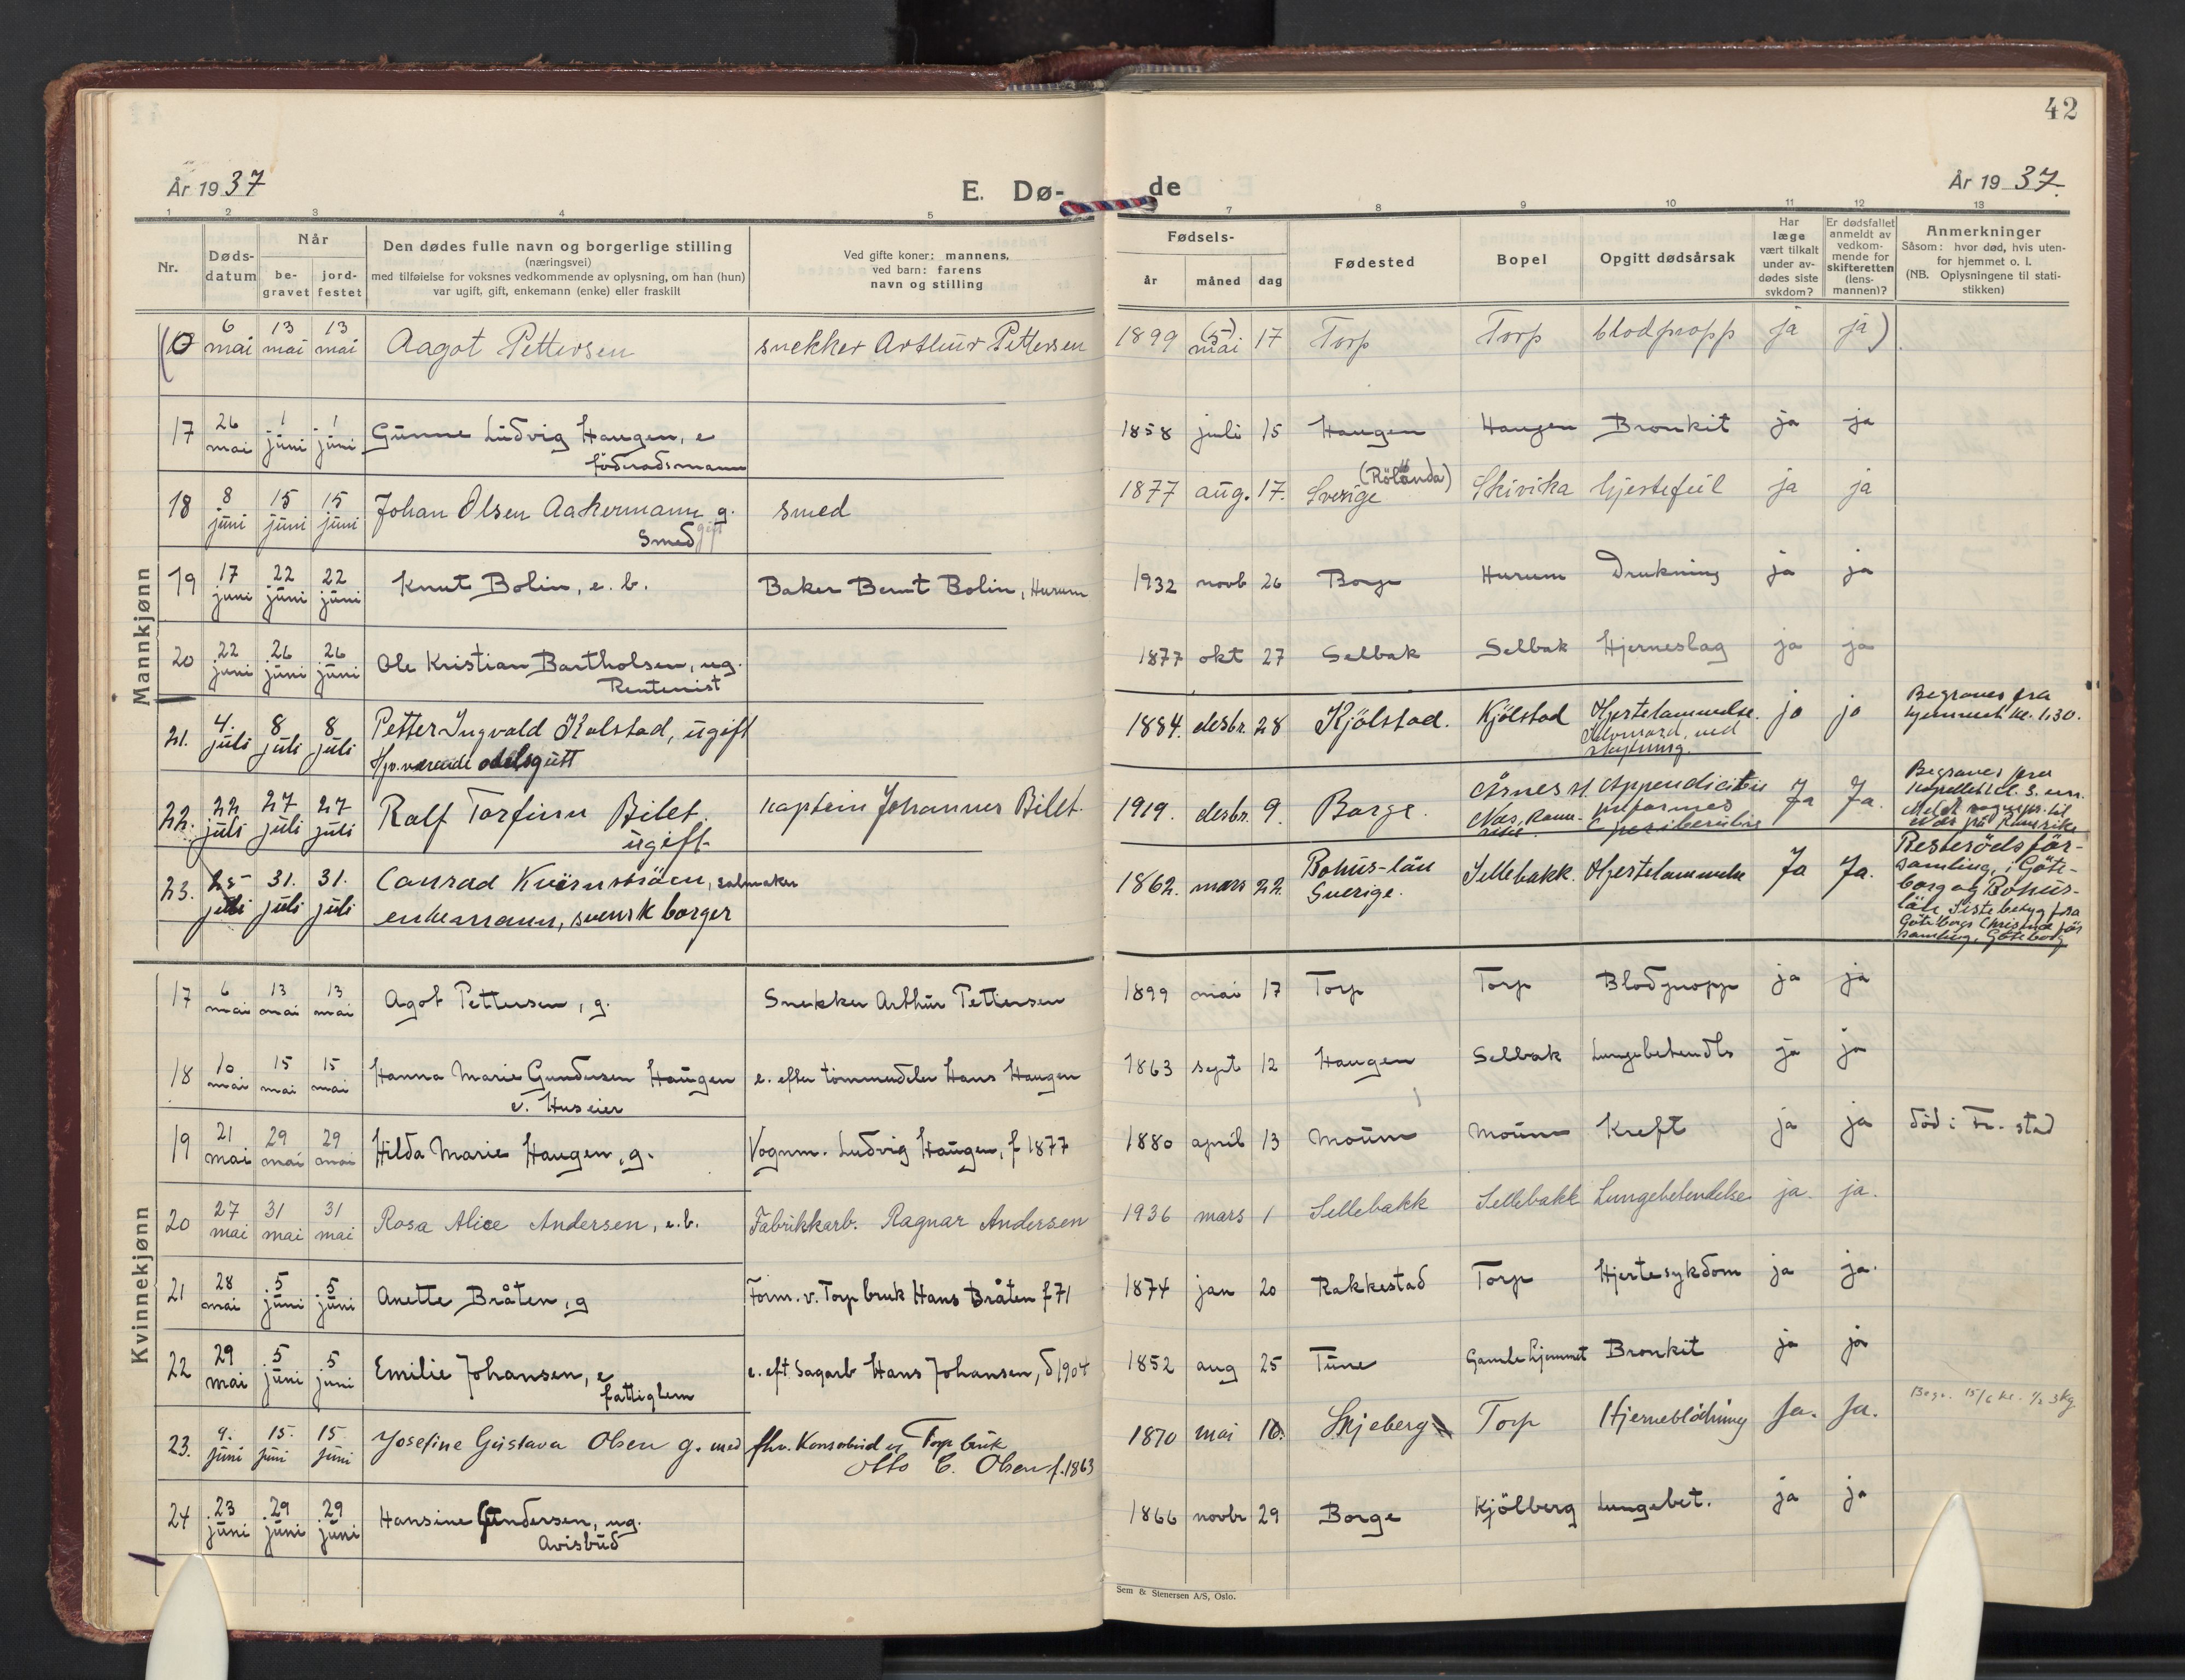 42
År 1937
E. Dø-
de
År 1937.
1 2 3 4 5 7 8 9 10 11 12 13
Nr.
Døds-
datum
Når
be-
gravet
jord-
festet
Den dødes fulle navn og borgerlige stilling
(næringsvei)
med tilføielse for voksnes vedkommende av oplysning, om han (hun)
var ugift, gift, enkemann (enke) eller fraskilt
Ved gifte koner: mannens,
ved barn: farens
navn og stilling
Fødsels-
år måned dag
Fødested
Bopel
Opgitt dødsårsak
Har
læge
vært tilkalt
under av-
dødes siste
sykdom?
Er dødsfallet
anmeldt av
vedkom-
mende for
skifteretten
(lens-
mannen)?
Anmerkninger
Såsom: hvor død, hvis uten-
for hjemmet o. l.
(NB. Oplysningene til stati-
stikken)
Mannkjønn
6 mai 13 mai 13 mai Aagot Pettersen snekker Arthur Pettersen 1899 (5) mai 17 Torp Torp blodpropp ja ja)
17 26 mai 1 juni 1 juni Gunne Ludvig Haugen, e 1858 juli 15 Haugen Haugen Bronkit ja ja
föderadsmann
18 8 juni 15 juni 15 juni Johan Olsen Aakermann g. smed 1877 aug. 17. Sverige (Rölanda) Skivika hjertefeil ja ja
Smed gift
19 17 juni 22 juni 22 juni Knut Bolin, e. b. Baker Bernt Bolin, Hurum 1932 novb 26 Borge Hurum Drukning ja ja
20 22 juni 26 juni 26 juni Ole Kristian Bartholsen, ug. 1877 okt 27 Selbak Selbak Hjerneslag ja ja
Rentenist
21. 4. juli 8 juli 8 juli Petter Ingvald Kolstad, ugift 1884. desbr. 28 Kjölstad. Kjölstad Hjertelammelse. ja ja
Hjv. værende odelsgutt
Selvmord, ved
skytning
Begraves fra
hjemmet kl. 1,30.
22. 22 juli 27 juli 27 juli Ralf Torfinn Bilet. kaptein Johannes Bilet. 1919. desbr. 9. Borge. Årnes st. Appendicitis Ja Ja.
ugift
Nes, Rom-
Begraves fra
23. 25 juli 31. juli 31. juli Conrad Kvarnström, salmaker 1862. mars 22. Bohus-län Sellebakk. Hjertelammelse Ja Ja.
enkemann, svensk borger
Sverige.
Resteröds för-
samling, i Göte-
borg og Bohus-
län. Siste betyg fra
Göteborgs Christinæ för
samling, Göteborg
Kvinnekjønn
17 6 mai 13 mai 13 mai Agot Pettersen, g. Snekker Arthur Pettersen 1899 mai 17 Torp Torp Blodpropp ja ja
18 10 mai 15 mai 15 mai Hanna Marie Gundersen Haugen e. efter tömmerdeler Hans Haugen 1863 sept 12 Haugen Selbak Lungebetendls ja ja
e. Huseier
19 21 mai 29 mai 29 mai Hilda Marie Haugen, g. Vognm. Ludvig Haugen, f 1877 1880 april 13 Moum Moum Kreft ja ja död i Fr. stad
20 27 mai 31 mai 31 mai Rosa Alice Andersen, e. b. Fabrikkarb. Ragnar Andersen 1936 mars 1 Sellebakk Sellebakk Lungebetendelse ja. ja.
21 28 mai 5 juni 5 juni Anette Bråten, g Form. v. Torp bruk Hans Bråten f 71 1874 jan 20 Rakkestad Torp Hjertesykdom ja ja.
22 29 mai 5 juni 5 juni Emilie Johansen, e e. eft Sagarb Hans Johansen, d 1904 1852 aug 25 Tune Gamlehjemmet Bronkit ja ja
fattiglem
23. 9. juni 15. juni 15 juni Josefine Gustava Olsen g. med fhv. Kontorbud v Torp bruk 1870 mai 10. Skjeberg Torp Hjerneblödning Ja. Ja. Begr. 15/6 kl. 1/2 3
Otto C. Olsen f. 1863
24 23 juni 29 juni 29 juni Hansine Gundersen, ug. 1866 novbr 29 Borge Kjölberg Lungebet. ja ja
Avisbud
Sem & Stenersen A/S, Oslo.